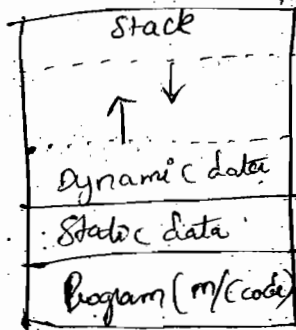 Stack
Dynamic data
Static data
Program (m/c code)